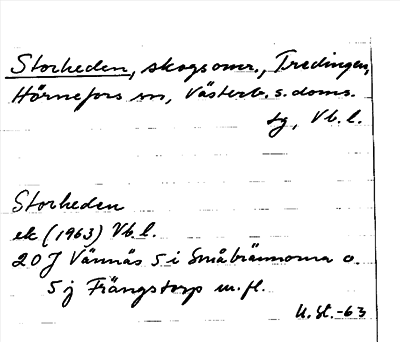 Storheden, skogsomr., Tredingen,
Hörnefors sn, Västerb. s. doms.
sg, Vb. l.
Storheden
ek (1963) Vb l.
20 J Vännäs 5 i Småbrännorna o.
5 j Frängstorp m. fl.
U. St. -63